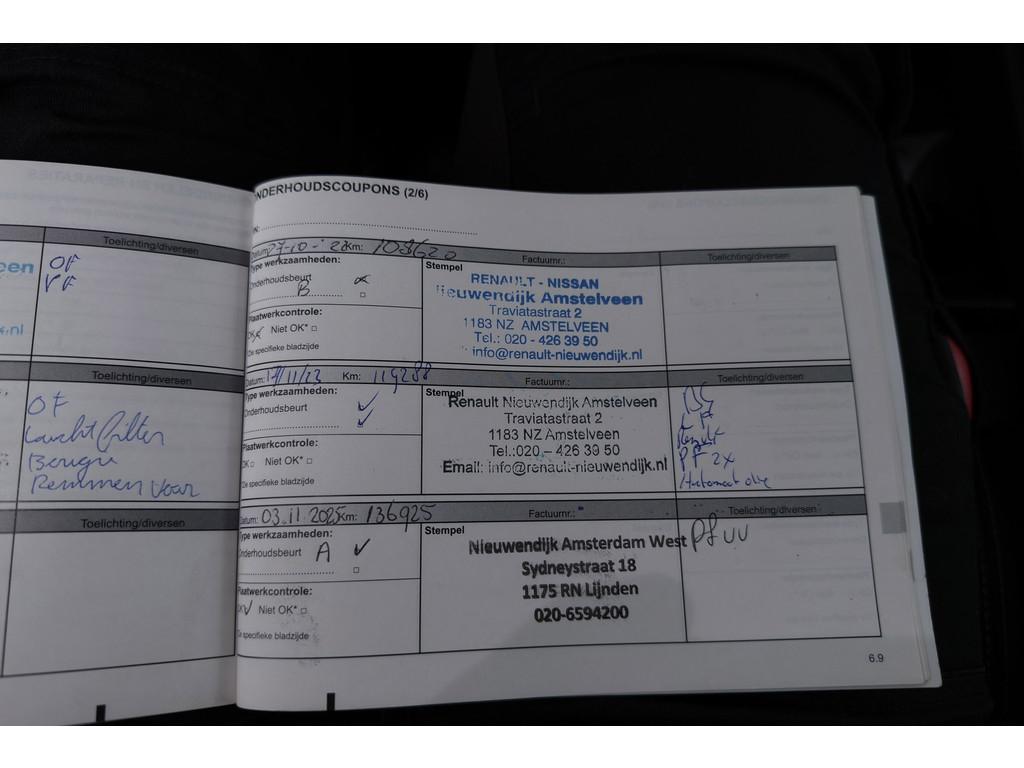 Toelichting/diversen
een
OF
.nl
Toelichting/diversen
OF
Luchtfilter
Bougie
Remmen voor
Toelichting/diversen
NDERHOUDSCOUPONS (2/6)
Datum: 27-10-'22 Km: 108620
Factuurnr.:
Toelichting/diversen
Type werkzaamheden:
Onderhoudsbeurt
B
Stempel
RENAULT - NISSAN
Nieuwendijk Amstelveen
Traviatastraat 2
1183 NZ AMSTELVEEN
Tel.: 020 - 426 39 50
info@renault-nieuwendijk.nl
Plaatwerkcontrole:
OK Niet OK* □
Zie specifieke bladzijde
Datum: 17/11/23 Km: 119288
Factuurnr.:
Toelichting/diversen
Type werkzaamheden:
Onderhoudsbeurt
Stempel
Renault Nieuwendijk Amstelveen
Traviatastraat 2
1183 NZ Amstelveen
Tel.:020 – 426 39 50
Email: info@renault-nieuwendijk.nl
PF 2x
Automaat olie
Plaatwerkcontrole:
OK □ Niet OK* □
Zie specifieke bladzijde
Datum: 03.11.2025 Km: 136925
Factuurnr.:
Toelichting/diversen
Type werkzaamheden:
Onderhoudsbeurt A
Stempel
Nieuwendijk Amsterdam West
Sydneystraat 18
1175 RN Lijnden
020-6594200
Plaatwerkcontrole:
OK Niet OK* □
Zie specifieke bladzijde
6.9